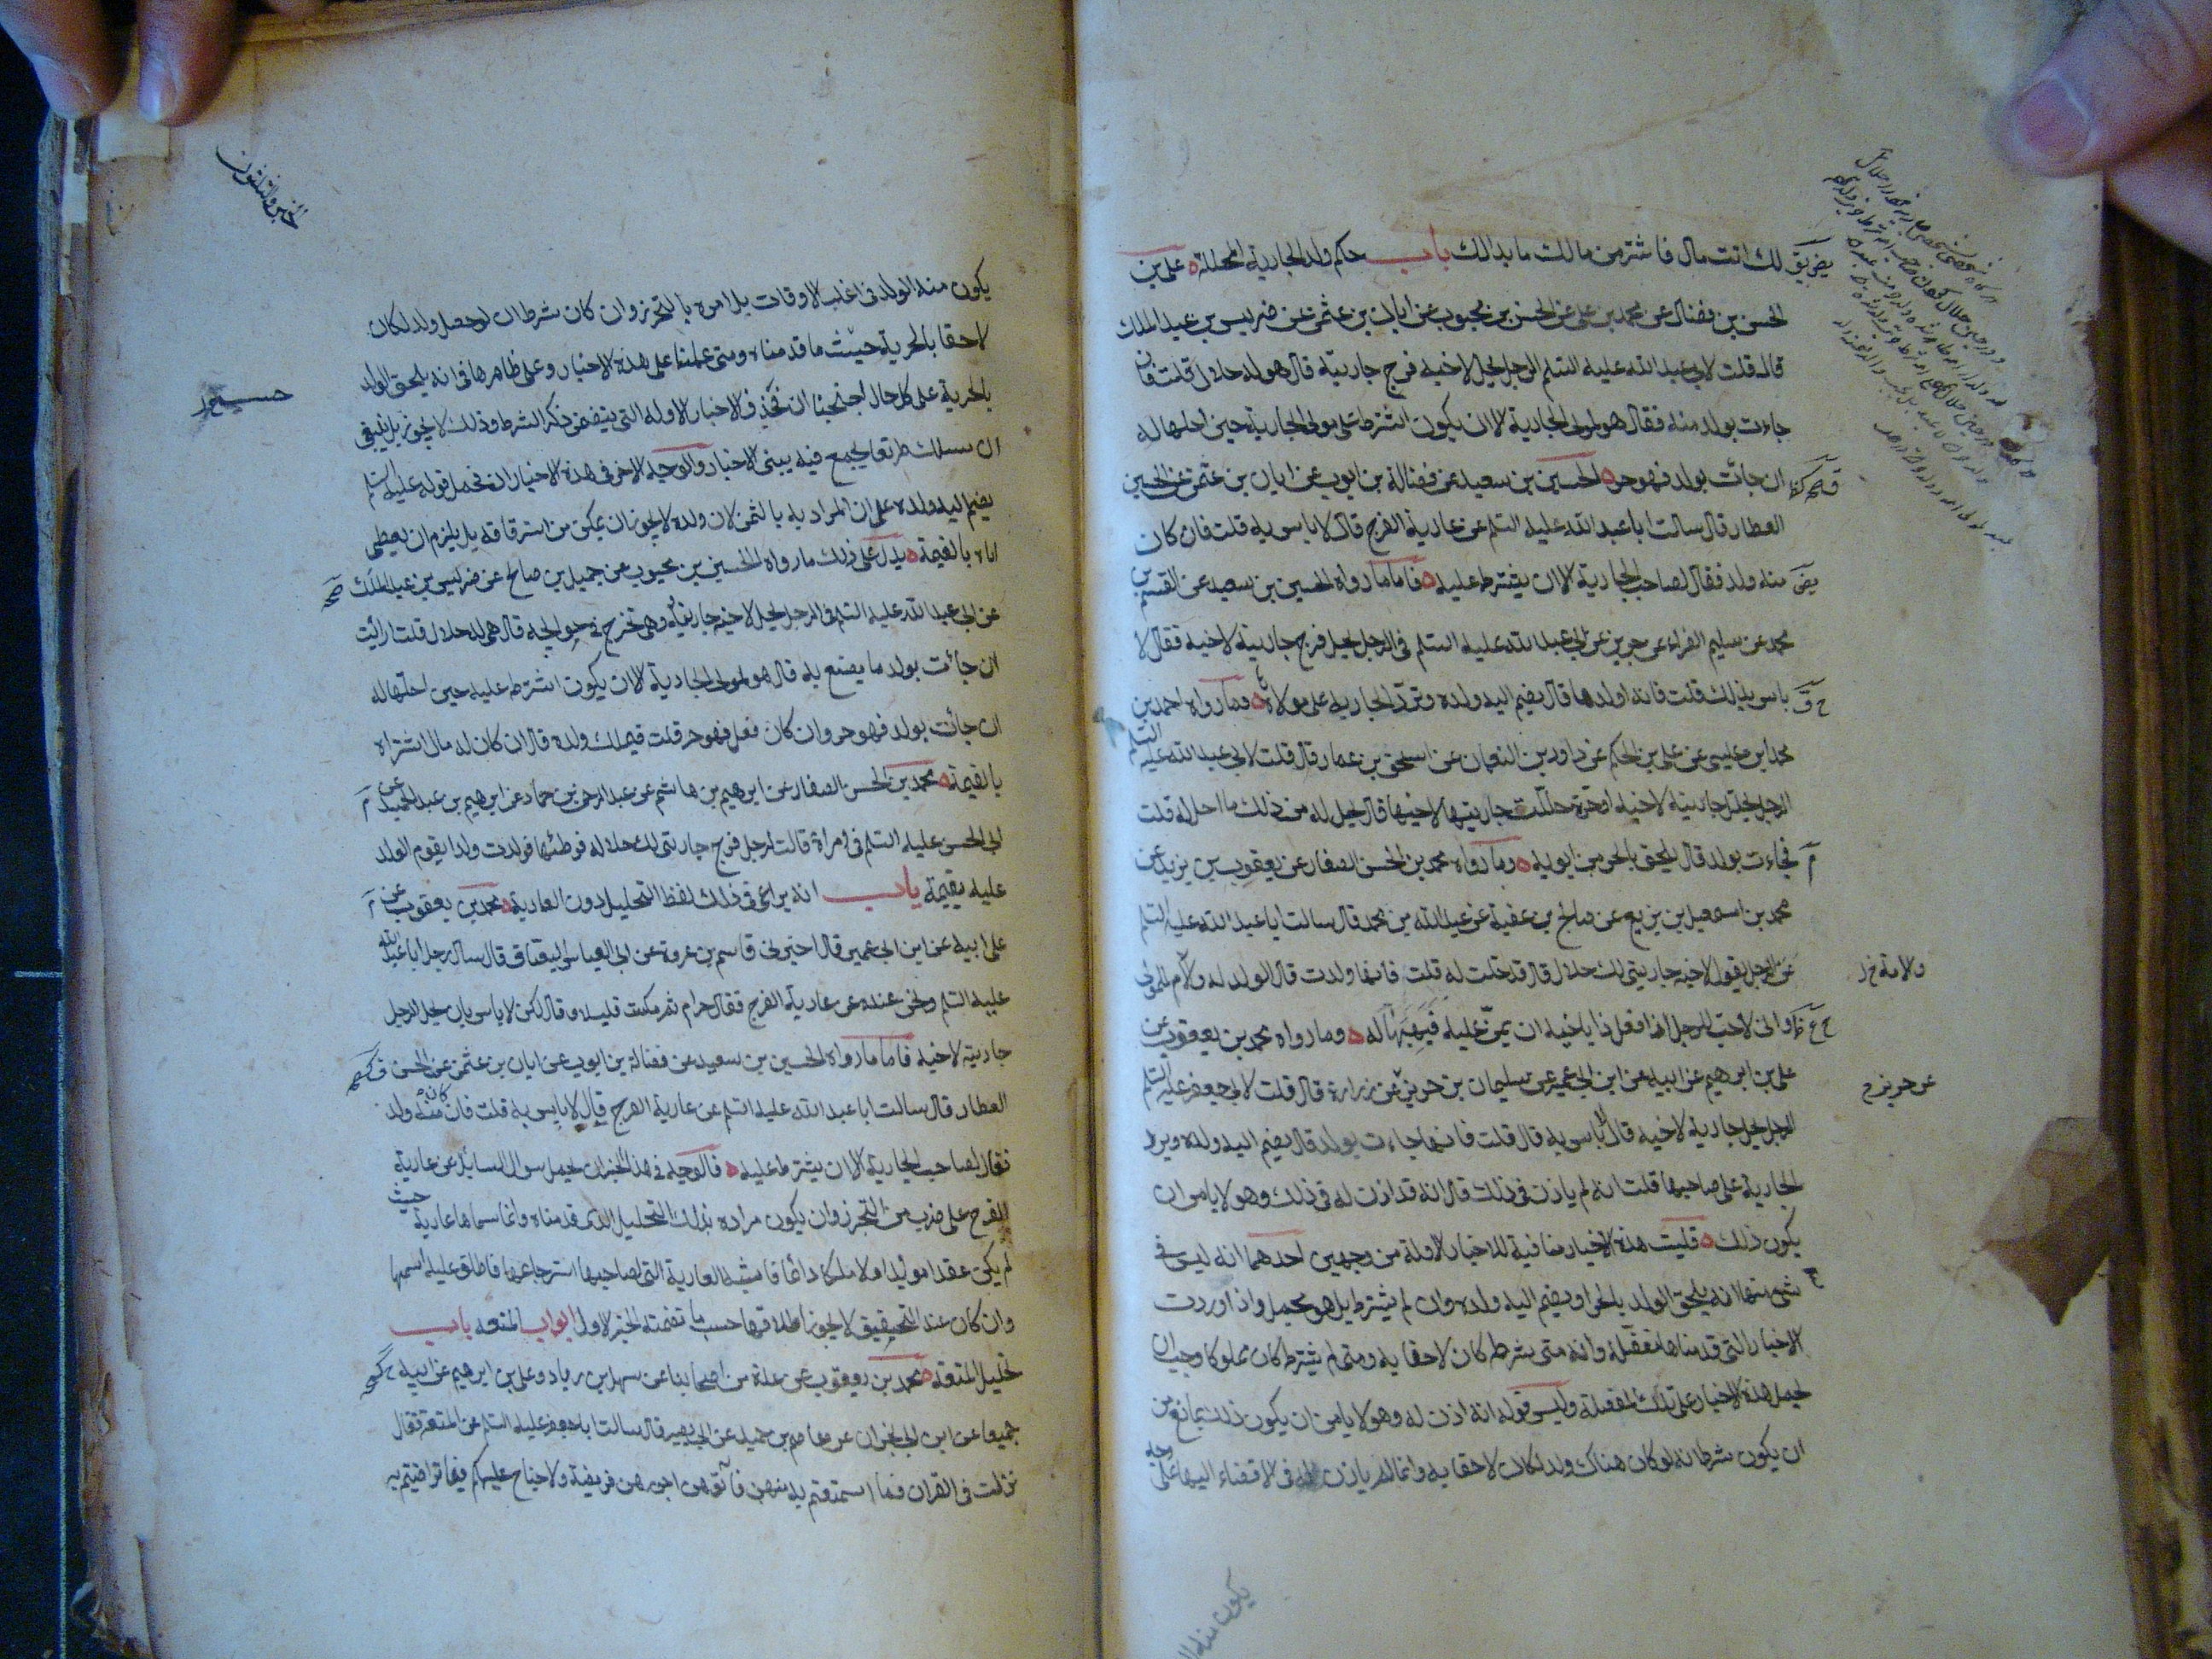 لك انت مال فاشتر من مالك ما بدالك باب حكم ولد الجارية المحللة علي بن
الحسن بن فضال عن محمد بن علي عن الحسن بن محبوب عن ابان بن عثمن عن ضريس بن عبد الملك
قال قلت لابي عبد الله عليه السلم الرجل يحل لاخيه فرج جاريته قال هو له حلال قلت فان
جاءت بولد منه فقال هو لمولى الجارية الا ان يكون اشترط على مولى الجارية حين احلها له
ان جائت بولد فهو حر الحسين بن سعيد عن فضالة بن ايوب عن ابان بن عثمن عن الحسين
العطار قال سالت ابا عبد الله عليه السلم عن عارية الفرج قال لا باس به قلت فان كان
منه ولد فقال لصاحب الجارية الا ان يشترط عليه فاما ما رواه الحسين بن سعيد عن القسم بن
محمد عن سليم الفراء عن حريز عن ابي عبد الله عليه السلم في الرجل يحل فرج جاريته لاخيه فقال لا
باس بذلك قلت فانه اولدها قال يضم اليه ولده وترد الجارية على مولاها وما رواه احمد بن
محمد بن عيسى عن علي بن الحكم عن داود بن النعمان عن اسحق بن عمار قال قلت لابي عبد الله عليه السلم
الرجل يحلل جاريته لاخيه او حرة حللت جاريتها لاخيها قال يحل له من ذلك ما احل له قلت
فجاءت بولد قال يلحق بالحر من ابويه وما رواه محمد بن الحسن الصفار عن يعقوب بن يزيد عن
محمد بن اسمعيل بن بزيع عن صالح بن عقبة عن عبد الله بن محمد قال سالت ابا عبد الله عليه السلم
عن الرجل يقول لاخيه جاريتي لك حلال قال قد حلت له قلت فانها ولدت قال الولد له والام للمولى
والامة خ ل
واني لاحب للرجل اذا فعل ذا باخيه ان يمن عليه فيهبها له وما رواه محمد بن يعقوب عن
علي بن ابرهيم عن ابيه عن ابن ابي عمير عن سليمان بن حريز عن زرارة قال قلت لابي جعفر عليه السلم
عن حريز م
الرجل يحل جارية لاخيه قال لا باس به قال قلت فانها جاءت بولد قال يضم اليه ولده ويرد
الجارية على صاحبها قلت انه لم ياذن في ذلك قال انه قد اذن له في ذلك وهو لا يامن ان
يكون ذلك قليت هذه الاخبار منافية للاخبار الاولة من وجهين احدهما انه ليس في
شيء منها انه يلحق الولد بالحر او يضم اليه ولده وان لم يشترط بل هو مجمل واذا وردت
الاخبار التي قدمناها مفصلة وانه متى شرط كان لاحقا به ومتى لم يشترط كان مملوكا وجب ان
يحمل هذه الاخبار على تلك المفصلة وليس قوله انه اذن له وهو لا يامن ان يكون ذلك بمانع من
ان يكون شرط انه لو كان هناك ولد لكان لاحقا به وانما لم ياذن له في الافضاء اليها على وجه
يكون منه الولد في اغلب الاوقات بل امره بالتحرز وان كان شرط ان لو حصل ولد لكان
لاحقا بالحرية حسب ما قدمناه ومتى عملنا على هذه الاخبار وعلى ظاهرها في انه يلحق الولد
بالحرية على كل حال احتجنا ان نحذف الاخبار الاولة التي يتضمن ذكر الشرط وذلك لا يجوز بل ينبغي
ان نسلك طريقا يجمع فيه بين الاخبار والوجه الاخر في هذه الاخبار ان نحمل قوله عليه السلم
يضم اليه ولده على ان المراد به بالثمن لان ولده لا يجوز ان يمكن من استرقاقه بل يلزم ان يعطى
اباه بالقيمة يدل على ذلك ما رواه الحسين بن محبوب عن جميل بن صالح عن ضريس بن عبد الملك
عن ابي عبد الله عليه السلم في الرجل يحل لاخيه جاريته وهي تخرج في حوائجه قال هي له حلال قلت ارايت
ان جائت بولد ما يصنع به قال هو لمولى الجارية الا ان يكون اشترط عليه حين احلها له
ان جائت بولد فهو حر وان كان فعل فهو حر قلت فيملك ولده قال ان كان له مال اشتراه
بالقيمة محمد بن الحسن الصفار عن ابرهيم بن هاشم عن عبد الرحمن بن حماد عن ابرهيم بن عبد الحميد عن
ابي الحسن عليه السلم في امراة قالت لرجل فرج جاريتي لك حلال فوطئها فولدت ولدا يقوم الولد
عليه بقيمة باب انه يراعى في ذلك لفظ التحليل دون العارية محمد بن يعقوب عن
علي ابيه عن ابن ابي عمير قال اخبرني قاسم بن عروة عن ابي العباس البقباق قال سال رجل ابا عبد الله
عليه السلم ونحن عنده عن عارية الفرج فقال حرام ثم مكث قليلا وقال لكن لا باس بان يحل الرجل
جاريته لاخيه فاما ما رواه الحسين بن سعيد عن فضالة بن ايوب عن ابان بن عثمن عن الحسن
العطار قال سالت ابا عبد الله عليه السلم عن عارية الفرج قال لا باس به قلت فان كان منه ولد
فقال لصاحب الجارية الا ان يشترط عليه فالوجه في هذا الخبر ان يحمل سوال السائل عن عارية
الفرج على ضرب من التجوز وان يكون مراده بذلك التحليل الذي قدمناه وانما سماها عارية حيث
لم يكن عقدا مؤبدا ولا ملكا دائما فاشبه العارية التي لصاحبها استرجاعها فاطلق عليه اسمها
وان كان عند التحقيق لا يجوز اطلاقها حسب ما تضمنه الخبر الاول ابواب المتعه باب
تحليل المتعة محمد بن يعقوب عن عدة من اصحابنا عن سهل بن زياد وعلي بن ابرهيم عن ابيه
جميعا عن ابن ابي نجران عن عاصم بن حميد عن ابي بصير قال سالت ابا جعفر عليه السلم عن المتعة فقال
نزلت في القران فما استمتعتم به منهن فآتوهن اجورهن فريضة ولا جناح عليكم فيما تراضيتم به